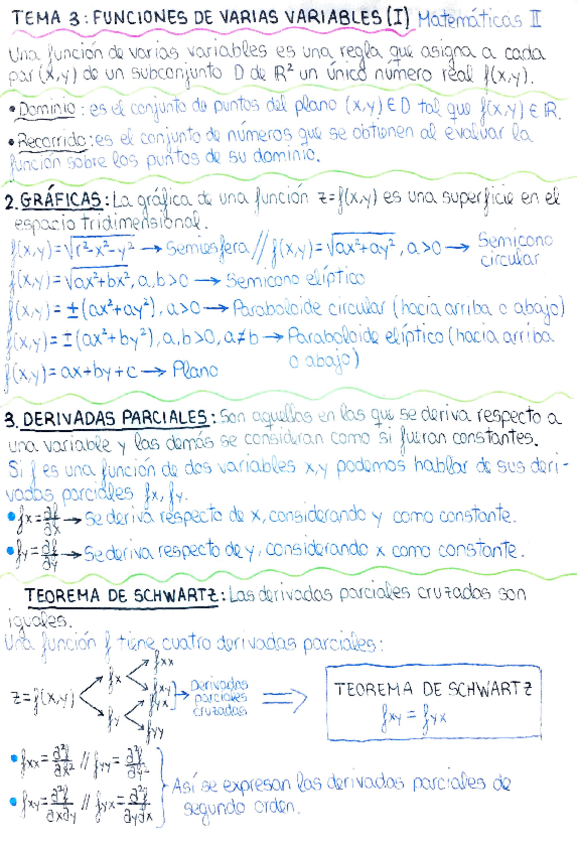 TEMA 3: FUNCIONES DE VARIAS VARIABLES (I) Matemáticas II
Una función de varias variables es una regla que asigna a cada
par (x,y) de un subconjunto D de ℝ² un único número real f(x,y).
• Dominio: es el conjunto de puntos del plano (x,y) ∈ D tal que f(x,y) ∈ ℝ.
• Recorrido: es el conjunto de números que se obtienen al evaluar la
función sobre los puntos de su dominio.
2. GRÁFICAS: La gráfica de una función z=f(x,y) es una superficie en el
espacio tridimensional.
f(x,y)=√(r²-x²-y²) → Semiesfera // f(x,y)=√(ax²+ay²), a>0 → Semicono
circular
f(x,y)=√(ax²+bx²), a,b>0 → Semicono elíptico
f(x,y)=±(ax²+ay²), a>0 → Paraboloide circular (hacia arriba o abajo)
f(x,y)=±(ax²+by²), a,b>0, a≠b → Paraboloide elíptico (hacia arriba
o abajo)
f(x,y)=ax+by+c → Plano
3. DERIVADAS PARCIALES: Son aquellas en las que se deriva respecto a
una variable y las demás se consideran como si fueran constantes.
Si f es una función de dos variables x,y podemos hablar de sus deri-
vadas parciales fx, fy.
• fx = ∂f/∂x → Se deriva respecto de x, considerando y como constante.
• fy = ∂f/∂y → Se deriva respecto de y, considerando x como constante.
TEOREMA DE SCHWARTZ: Las derivadas parciales cruzadas son
iguales.
Una función f tiene cuatro derivadas parciales:
z=f(x,y)
fx
fy
fxx
fxy
fyx
fyy
→ Derivadas
parciales
cruzadas
⇒
TEOREMA DE SCHWARTZ
fxy = fyx
• fxx = ∂²f/∂x² // fyy = ∂²f/∂y²
• fxy = ∂²f/∂x∂y // fyx = ∂²f/∂y∂x
Así se expresan las derivadas parciales de
segundo orden.